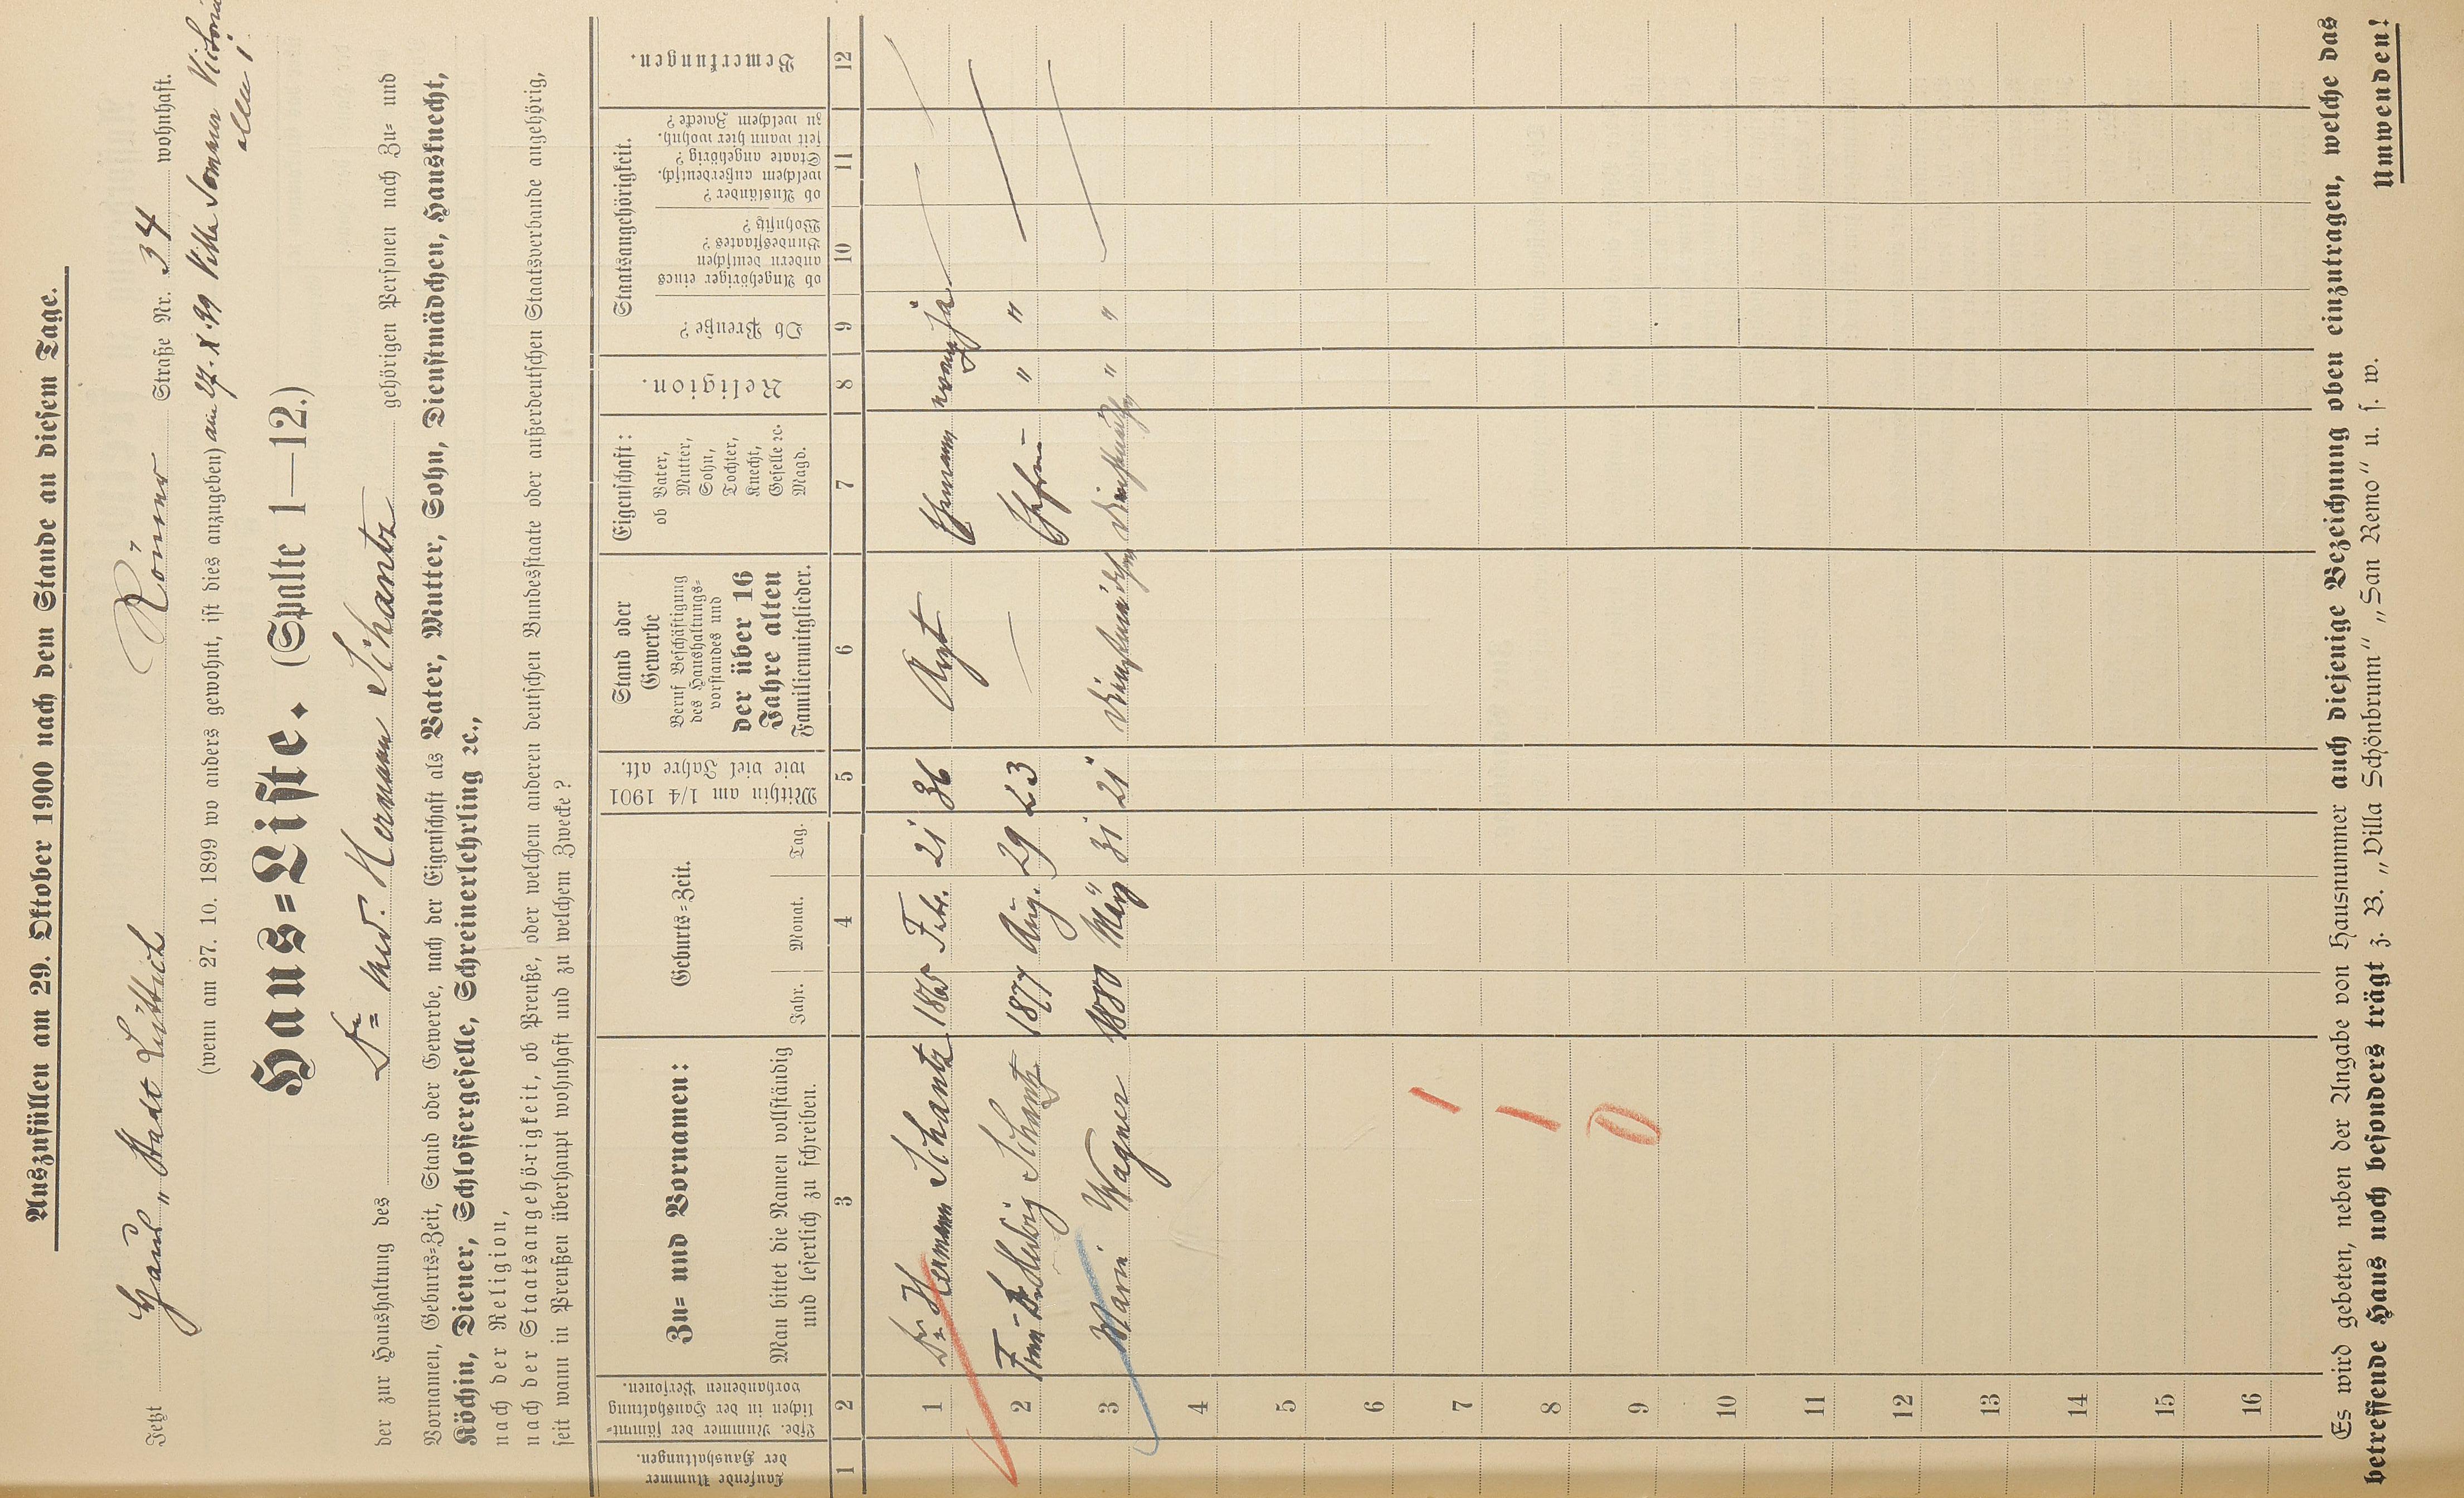 Auszufüllen am 29. Oktober 1900 nach dem Stande an diesem Tage.
Jetzt Haus „Stadt Lüttich Römer Straße Nr. 34 wohnhaft.
(wenn am 27. 10. 1899 wo anders gewohnt, ist dies anzugeben) am 27. X. 99 Villa Sommer Victoria
allee,
Haus=Liste. (Spalte 1—12.)
der zur Haushaltung des Dr. med. Hermann Schantz gehörigen Personen nach Zu= und
Vornamen, Geburts=Zeit, Stand oder Gewerbe, nach der Eigenschaft als Vater, Mutter, Sohn, Dienstmädchen, Hausknecht,
Köchin, Diener, Schlossergeselle, Schreinerlehrling ꝛc.,
nach der Religion,
nach der Staatsangehörigkeit, ob Preuße, oder welchem anderen deutschen Bundesstaate oder außerdeutschen Staatsverbande angehörig,
seit wann in Preußen überhaupt wohnhaft und zu welchem Zwecke?
Laufende Nummer
der Haushaltungen.
Lfde. Nummer der sämmt=
lichen in der Haushaltung
vorhandenen Personen.
Zu= und Vornamen:
Man bittet die Namen vollständig
und leserlich zu schreiben.
Geburts=Zeit.
Jahr. Monat. Tag.
Mithin am 1/4 1901
wie viel Jahre alt.
Stand oder
Gewerbe
Beruf Beschäftigung
des Haushaltungs=
vorstandes und
der über 16
Jahre alten
Familienmitglieder.
Eigenschaft:
ob Vater,
Mutter,
Sohn,
Tochter,
Knecht,
Geselle ꝛc.
Magd.
Religion.
Staatsangehörigkeit.
Ob Preuße?
ob Angehöriger eines
andern deutschen
Bundesstaates?
Wohnsitz?
ob Ausländer?
welchem außerdeutsch.
Staate angehörig?
seit wann hier wohnh.
zu welchem Zwecke?
Bemerkungen.
1 2 3 4 5 6 7 8 9 10 11 12
1 Dr. Hermann Schantz 1865 Febr. 21 36 Arzt Ehemann evang. ja
2 Frau Hedwig Schantz 1877 Aug. 29 23 — Ehefrau " "
3 Maria Wagner 1880 März 31 21 Dienstmädchen Dienstmädchen " "
4
5
6
7
8
9
10
11
12
13
14
15
16
Es wird gebeten, neben der Angabe von Hausnummer auch diejenige Bezeichnung oben einzutragen, welche das
betreffende Haus noch besonders trägt z. B. „Villa Schönbrunn“ „San Remo“ u. s. w.
Umwenden!